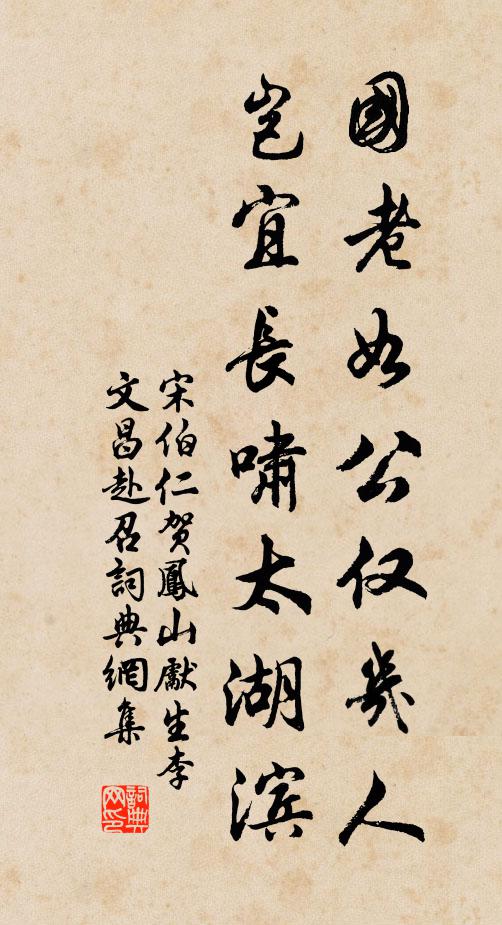 國老如公仅幾人
岂宜長嘯太湖滨
宋伯仁贺鳳山獻生李
文昌赴召詞典網集
詞典网印